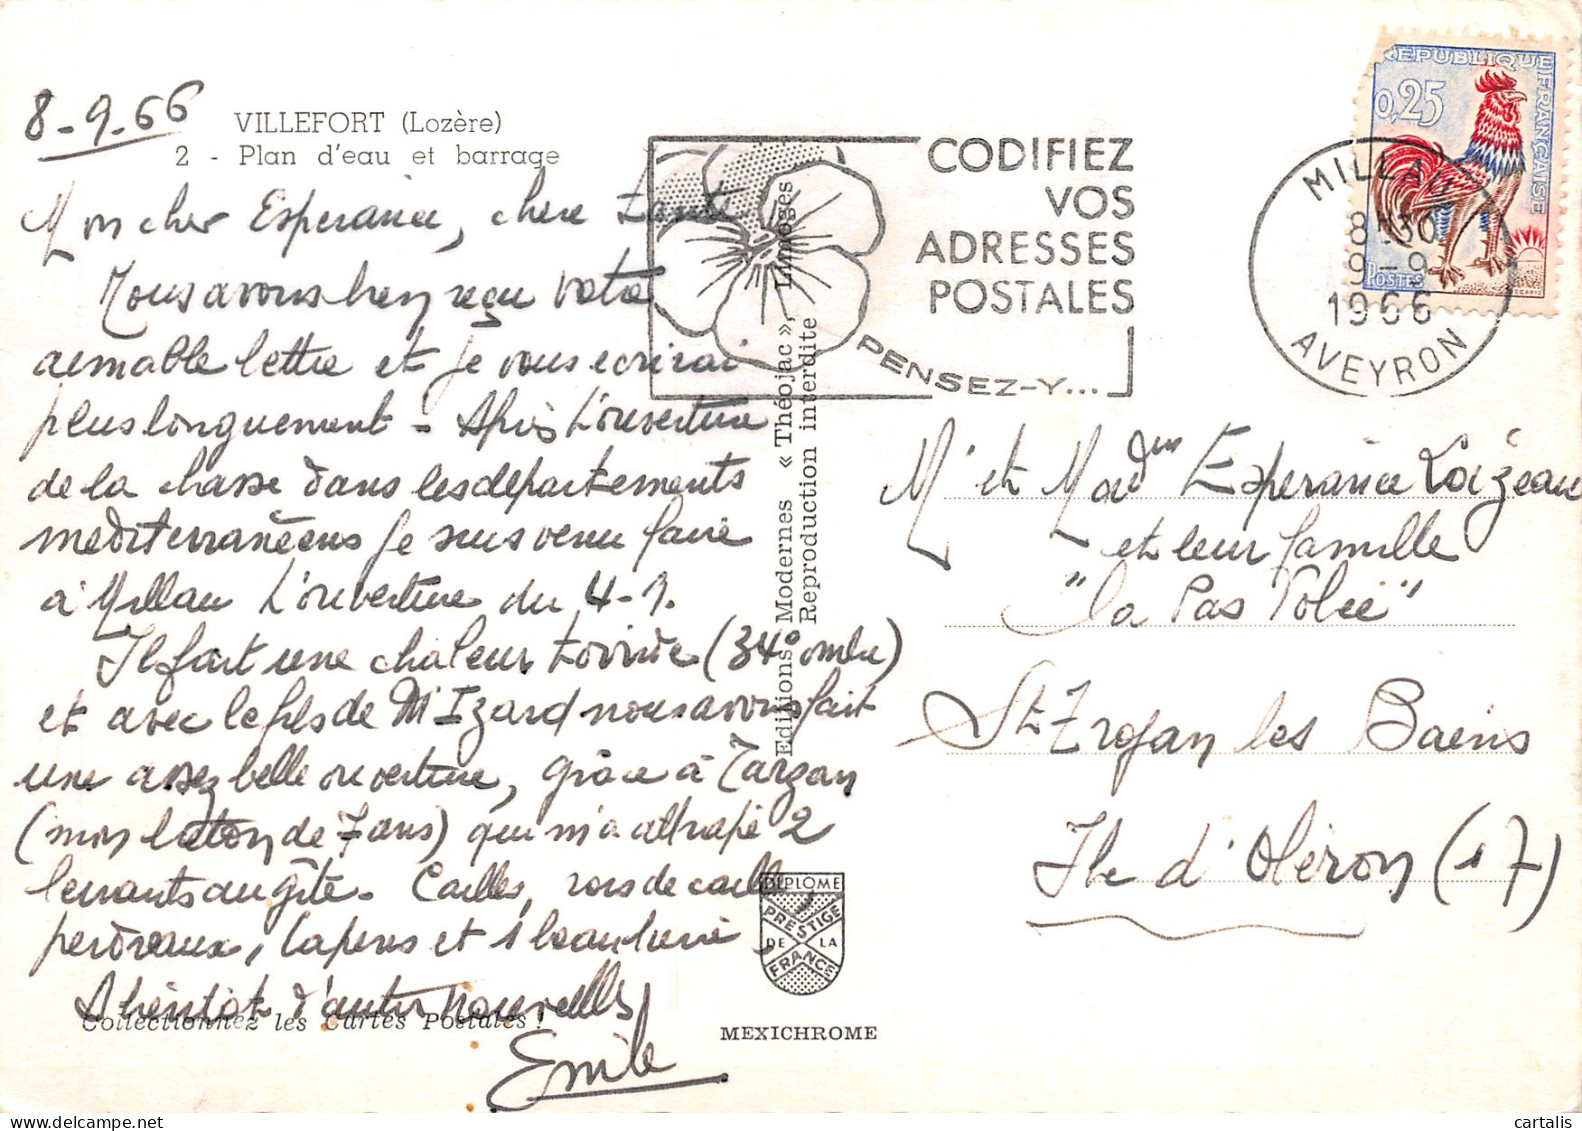 8-9-66
VILLEFORT (Lozère)
2 - Plan d'eau et barrage
Mon cher Esperance, chere Tante
Nous avons bien reçu votre
aimable lettre et je vous ecrirai
plus longuement - Après l'ouverture
de la chasse dans les departements
mediterranéens je suis venu faire
à Millau l'ouverture du 4-9.
Il fait une chaleur torride (34° ombre)
et avec le fils de Mr Izard nous avons fait
une assez belle ouverture, grâce à Tarzan
(mon breton de 7 ans) qui m'a attrapé 2
levrauts au gîte. Cailles, rois de caille,
perdreaux, lapins et 1 beau lievre
A bientôt d'autres nouvelles
Emile
Collectionnez les Cartes Postales !
Editions Modernes « Théojac », Limoges
Reproduction interdite
DIPLOME
PRESTIGE
DE LA
FRANCE
MEXICHROME
CODIFIEZ
VOS
ADRESSES
POSTALES
PENSEZ-Y...
REPUBLIQUE FRANÇAISE
0,25
POSTES
MILLAU
8H30
9-9
1966
AVEYRON
Mr et Madme Esperance Loizeau
et leur famille
"la Pas Volée"
St Trojan les Bains
Ile d'Oléron (17)
cartalis